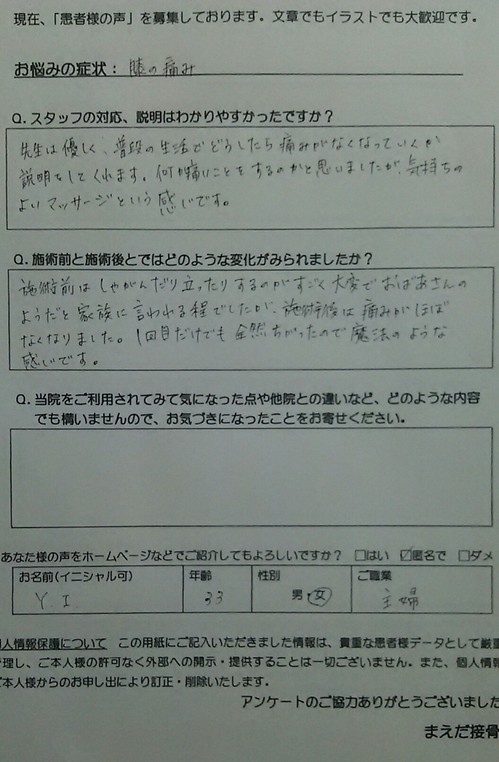 現在、「患者様の声」を募集しております。文章でもイラストでも大歓迎です。
お悩みの症状： 膝の痛み
Q. スタッフの対応、説明はわかりやすかったですか？
先生は優しく、普段の生活でどうしたら痛みがなくなっていくか
説明をしてくれます。何か痛いことをするのかと思いましたが、気持ちの
よいマッサージという感じです。
Q. 施術前と施術後とではどのような変化がみられましたか？
施術前はしゃがんだり立ったりするのがすごく大変でおばあさんの
ようだと家族に言われる程でしたが、施術後は痛みがほぼ
なくなりました。1回目だけでも全然ちがったので魔法のような
感じです。
Q. 当院をご利用されてみて気になった点や他院との違いなど、どのような内容
でも構いませんので、お気づきになったことをお寄せください。
あなた様の声をホームページなどでご紹介してもよろしいですか？ □はい ☑匿名で □ダメ
お名前(イニシャル可) 年齢 性別 ご職業
Y I 33 男・女 主婦
個人情報保護について この用紙にご記入いただきました情報は、貴重な患者様データとして厳重
管理し、ご本人様の許可なく外部への開示・提供することは一切ございません。また、個人情報
ご本人様からのお申し出により訂正・削除いたします。
アンケートのご協力ありがとうございました
まえだ接骨